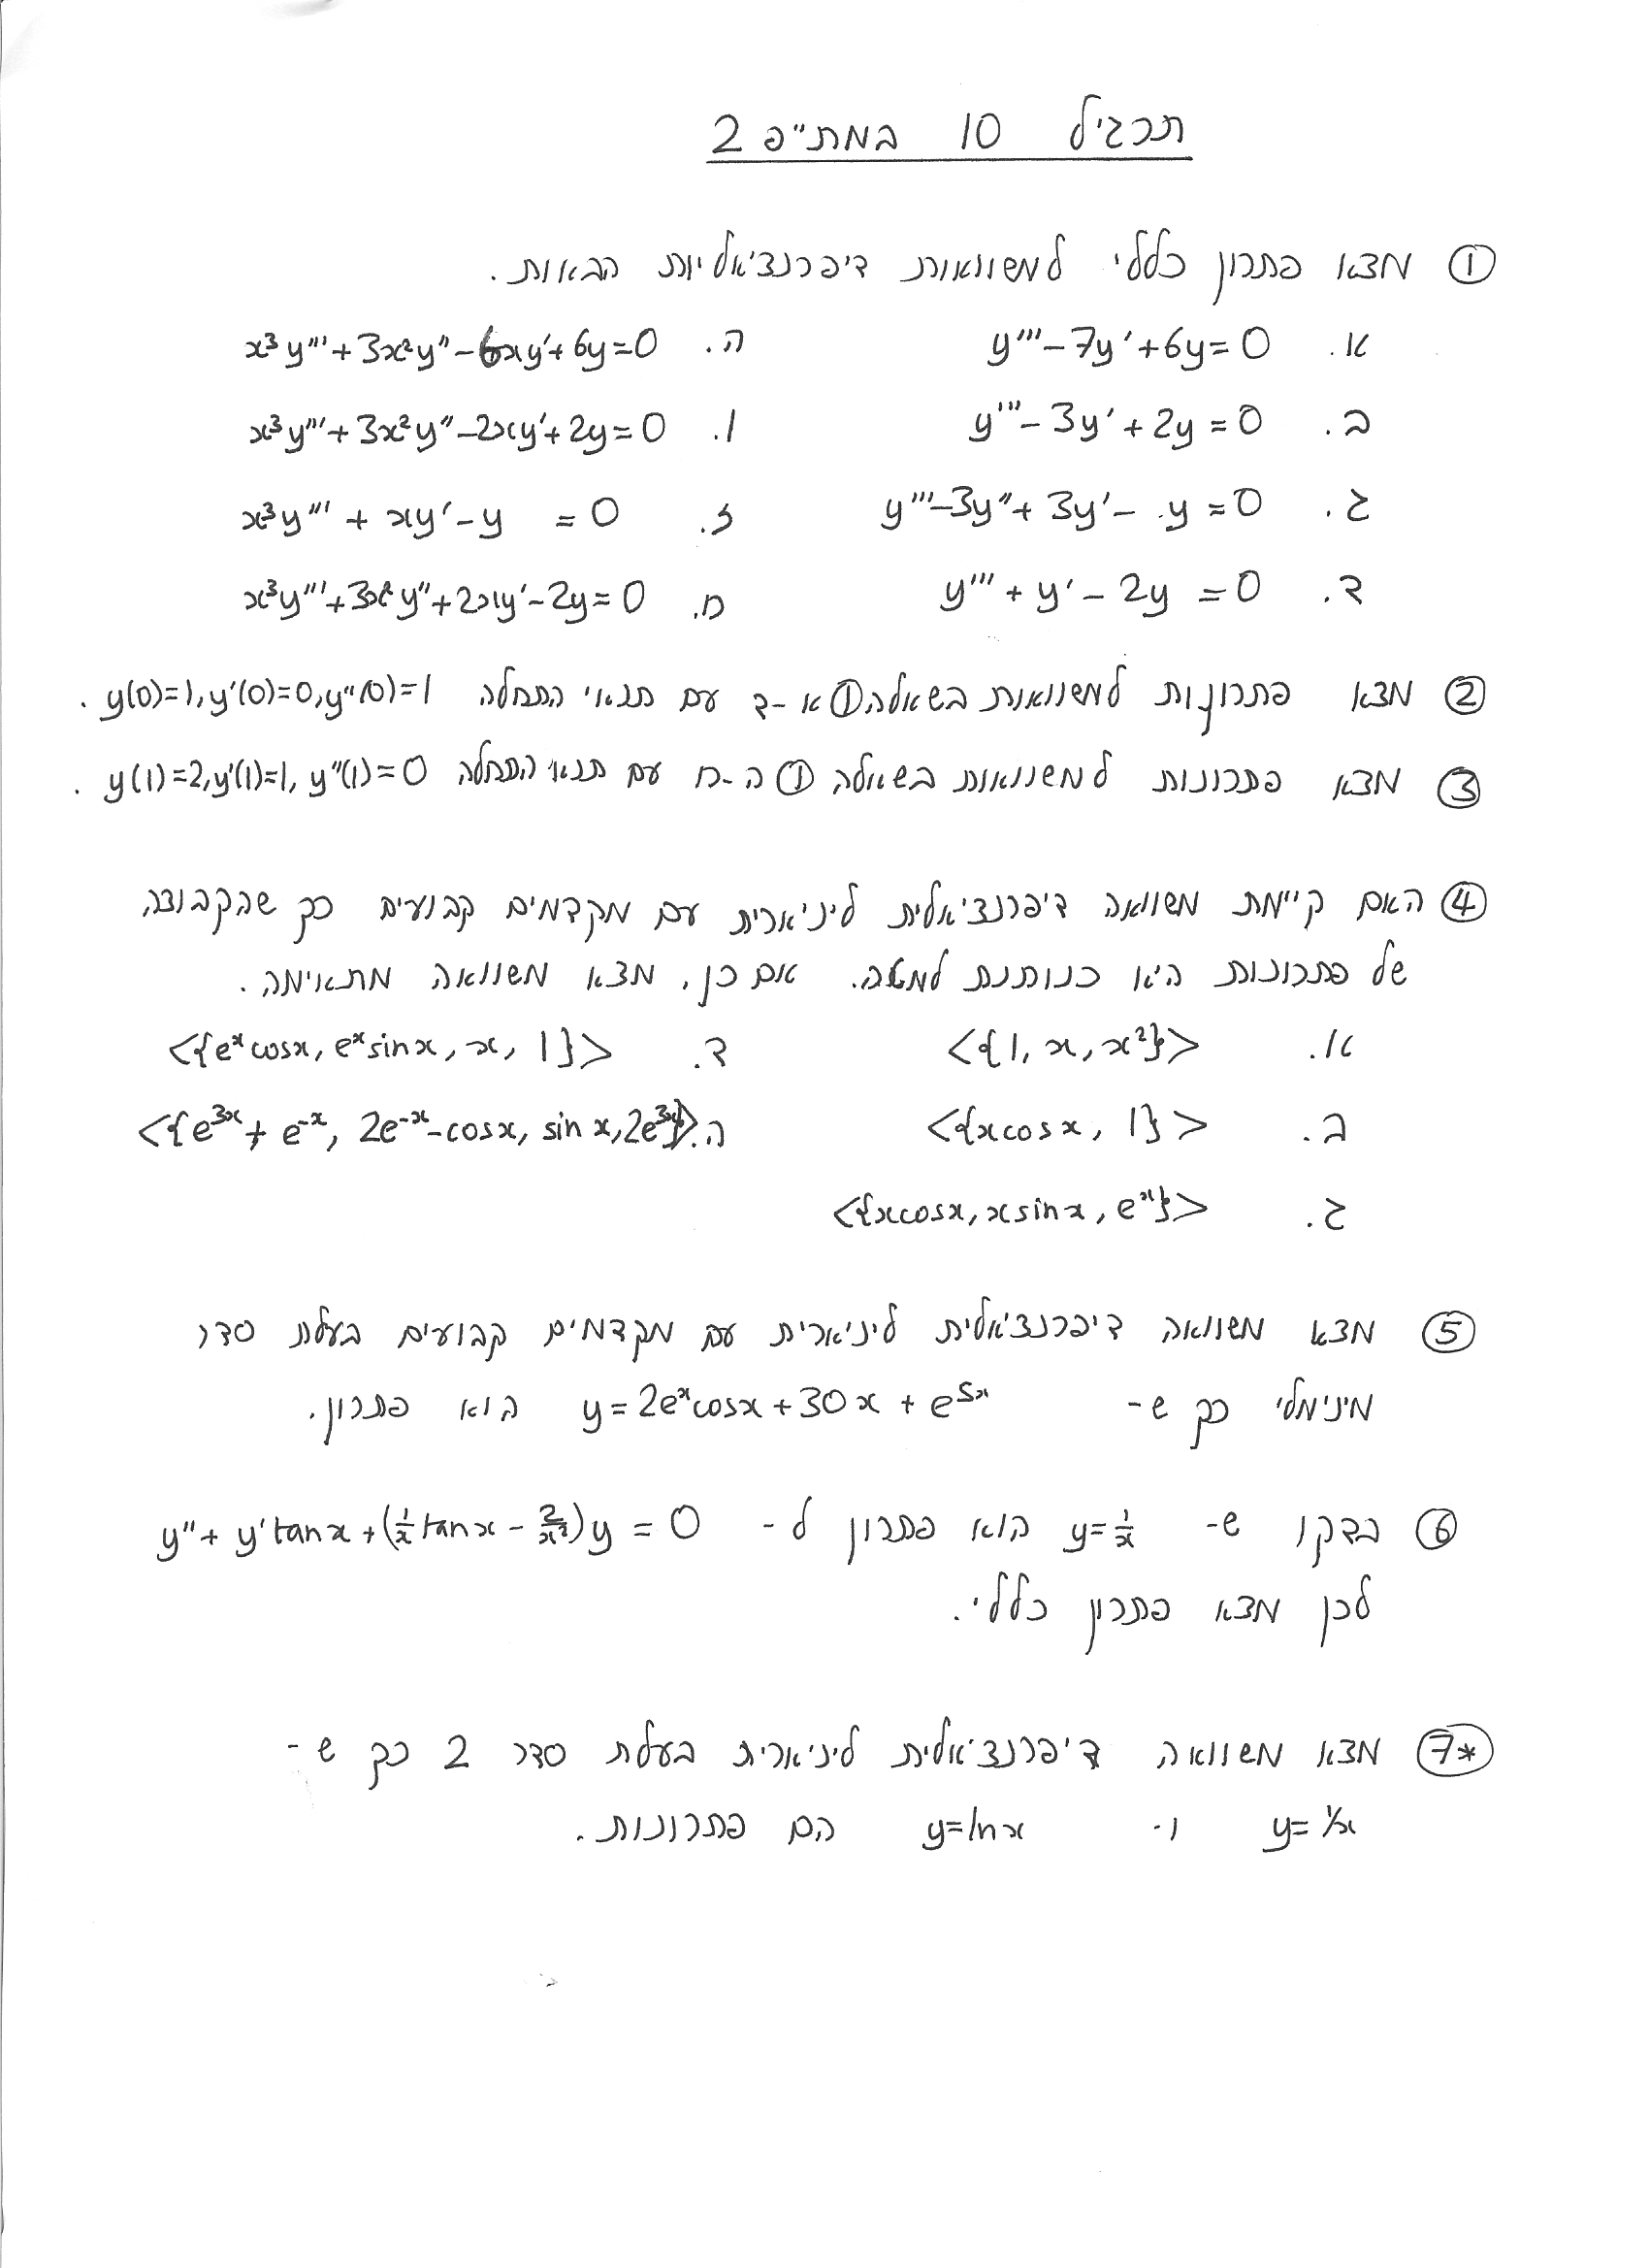 תרגיל 10 במת"פ 2
① מצא פתרון כללי למשוואות דיפרנצ'אליות הבאות.
א. y'''-7y'+6y=0
ה. x³y'''+3x²y''-6xy'+6y=0
ב. y'''-3y'+2y=0
ו. x³y'''+3x²y''-2xy'+2y=0
ג. y'''-3y''+3y'-y=0
ז. x³y'''+xy'-y=0
ד. y'''+y'-2y=0
ח. x³y'''+3x²y''+2xy'-2y=0
② מצא פתרונות למשוואות בשאלה ① א-ד עם תנאי התחלה y(0)=1, y'(0)=0, y''(0)=1.
③ מצא פתרונות למשוואות בשאלה ① ה-ח עם תנאי התחלה y(1)=2, y'(1)=1, y''(1)=0.
④ האם קיימת משוואה דיפרנצ'אלית ליניארית עם מקדמים קבועים כך שהקבוצה
של פתרונות היא כנותנת למטה. אם כן, מצא משוואה מתאימה.
א. <{1, x, x²}>
ד. <{eˣcosx, eˣsinx, x, 1}>
ב. <{xcosx, 1}>
ה. <{e³ˣ+e⁻ˣ, 2e⁻ˣ-cosx, sinx, 2e³ˣ}>
ג. <{xcosx, xsinx, eˣ}>
⑤ מצא משוואה דיפרנצ'אלית ליניארית עם מקדמים קבועים בעלת סדר
מינימלי כך ש- y=2eˣcosx+30x+e⁵ˣ הוא פתרון.
⑥ בדקו ש- y=1/x הוא פתרון ל- y''+y'tanx+(1/x tanx-2/x²)y=0
לכן מצא פתרון כללי.
⑦* מצא משוואה דיפרנצ'אלית ליניארית בעלת סדר 2 כך ש-
y=1/x ו- y=lnx הם פתרונות.